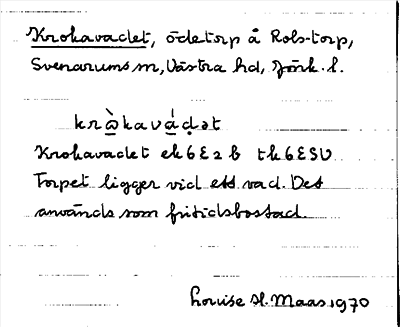 Krokavadet, ödetorp å Rolstorp,
Svenarums sn, Västra hd, Jönk. l.
kråkavádət
Krokavadet ek 6E2b tk 6ESV
Torpet ligger vid ett vad. Det
används som fritidsbostad.
Louise H. Maas 1970